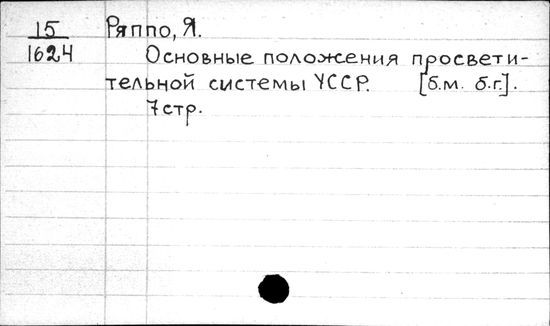 15 Ряппо, Я.
1624 Основные положения просвети-
тельной системы УССР. [б.м. б.г.].
7 стр.